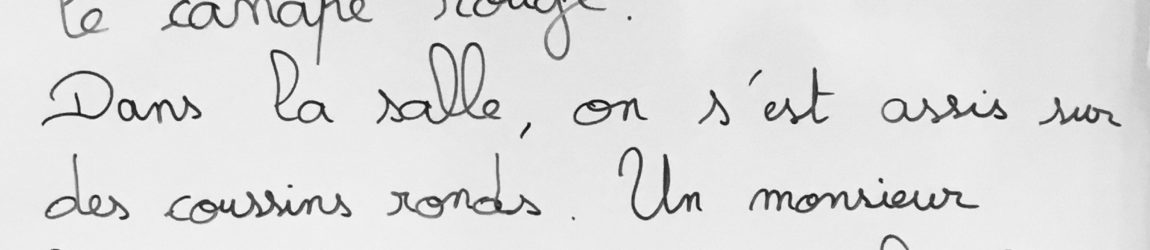 le canapé rouge.
Dans la salle, on s'est assis sur
des coussins ronds. Un monsieur